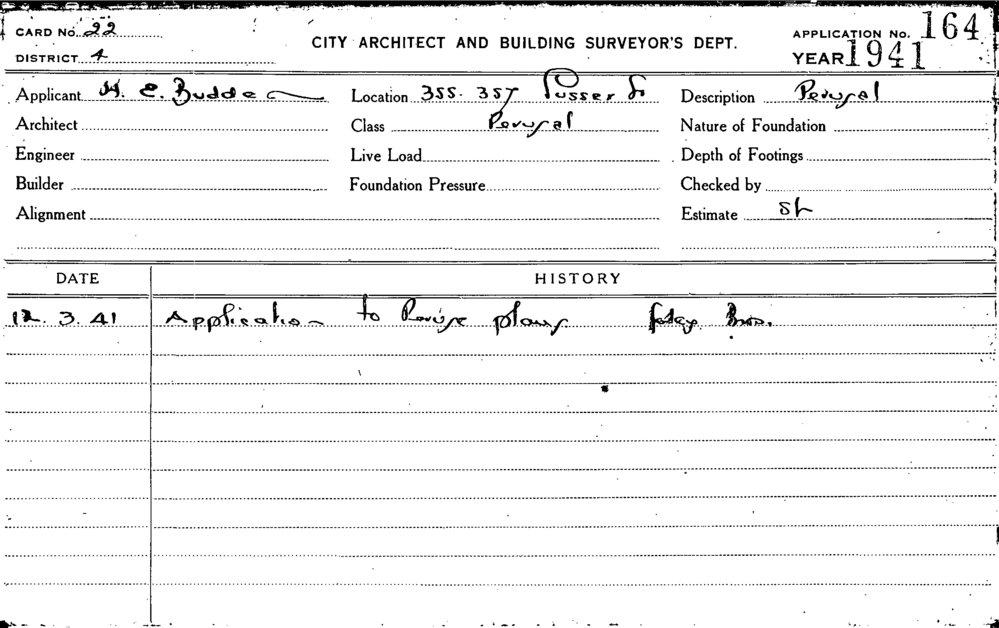 CARD No. 22
DISTRICT 4
CITY ARCHITECT AND BUILDING SURVEYOR'S DEPT.
APPLICATION No. 164
YEAR 1941
Applicant H. E. Budden
Location 355. 357 Sussex St
Description Perusal
Architect
Class Perusal
Nature of Foundation
Engineer
Live Load
Depth of Footings
Builder
Foundation Pressure
Checked by
Alignment
Estimate
DATE
HISTORY
12. 3. 41 Application to Peruse plans Bros.